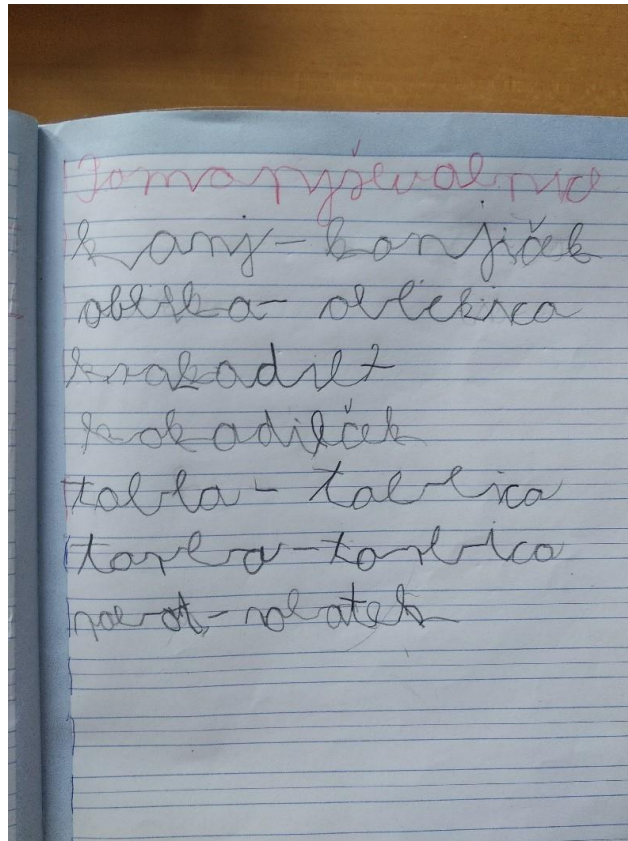 Pomanjševalnice
kanj - konjiček
obleka - oblekica
krokadil
kokadilček
tabla - tablica
torba - torbica
robot - robatek